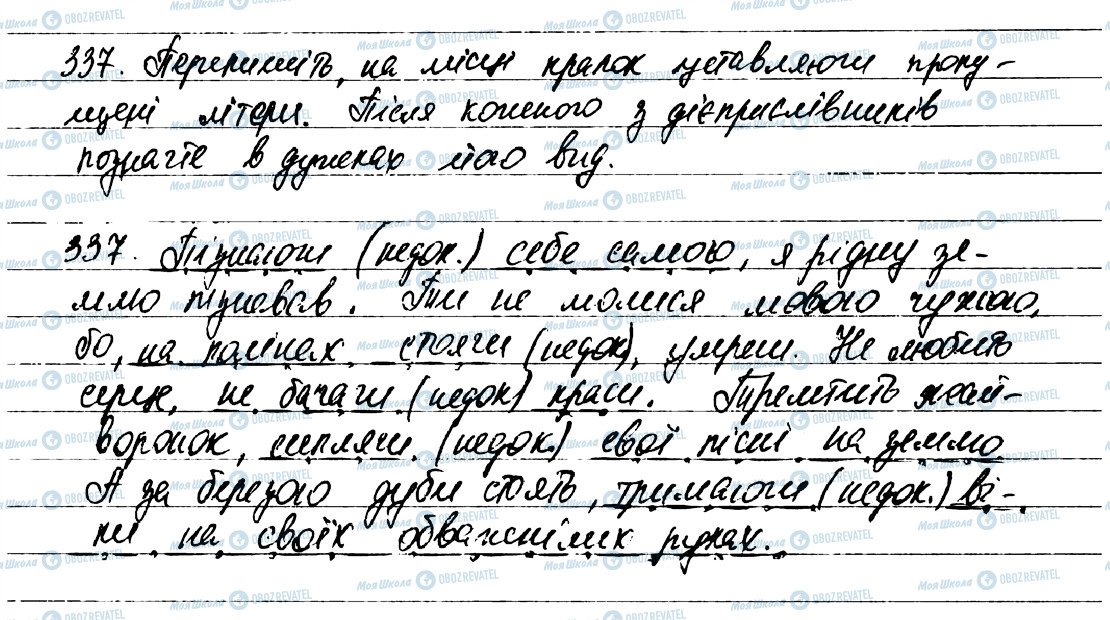 337. Перепишіть, на місці крапок уставляючи пропу-
щені літери. Після кожного з дієприслівників
позначте в дужках його вид.
337. Пізнаючи (недок.) себе самого, я рідну зе-
млю пізнавав. Ти не молися мовою чужою,
бо, на колінах стоячи (недок), умреш. Не любить
серце, не бачачи (недок) краси. Тремтить жай-
воронок, сиплячи (недок.) свої пісні на землю
А за березою дуби стоять, тримаючи (недок.) ві-
ки на своїх обважнілих руках.